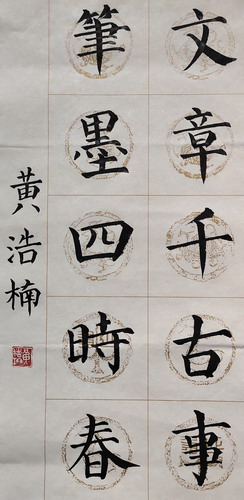 文章千古事
筆墨四時春
黃浩楠